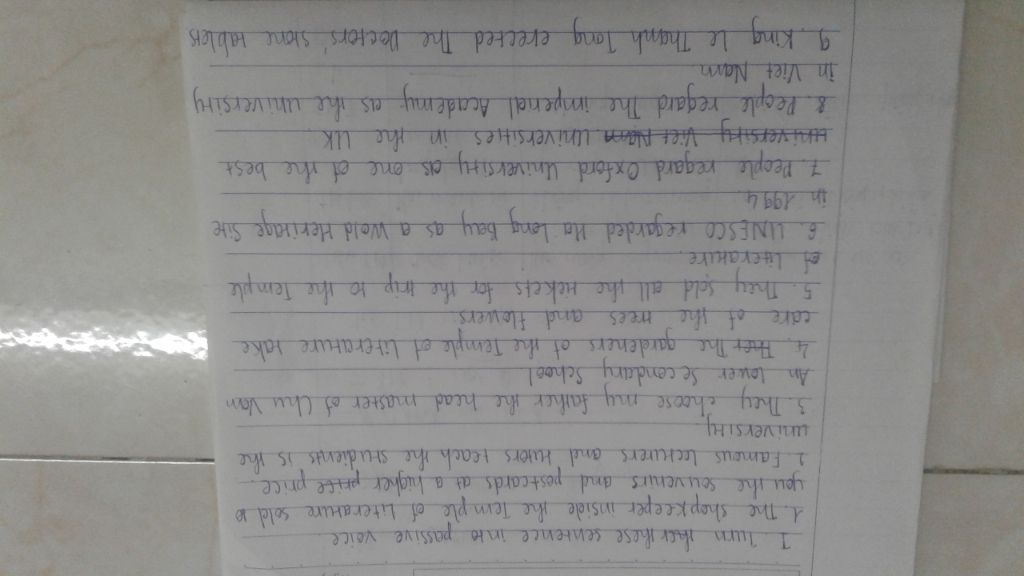 I Turn these sentence into passive voice.
1. The shopkeeper inside the Temple of Literature sold to
you the souvenirs and postcards at a higher price price.
2 Famous lecturers and tutors teach the studients is the
university.
3. They choose my father the head master of Chu Van
An lower Secondary School
4. The gardeners of the Temple of Literature take
care of the trees and flowers.
5. They sold all the tickets for the trip to the Temple
of Literature.
6. UNESCO regarded Ha Long Bay as a Wold Heritage Site
in 1994
7. People regard Oxford University as one of the best
university Viet Nam universities in the UK.
8. People regard The imperial Academy as the university
in Viet Nam.
9. King Le Thanh Tong erected The Doctors' stone tablets